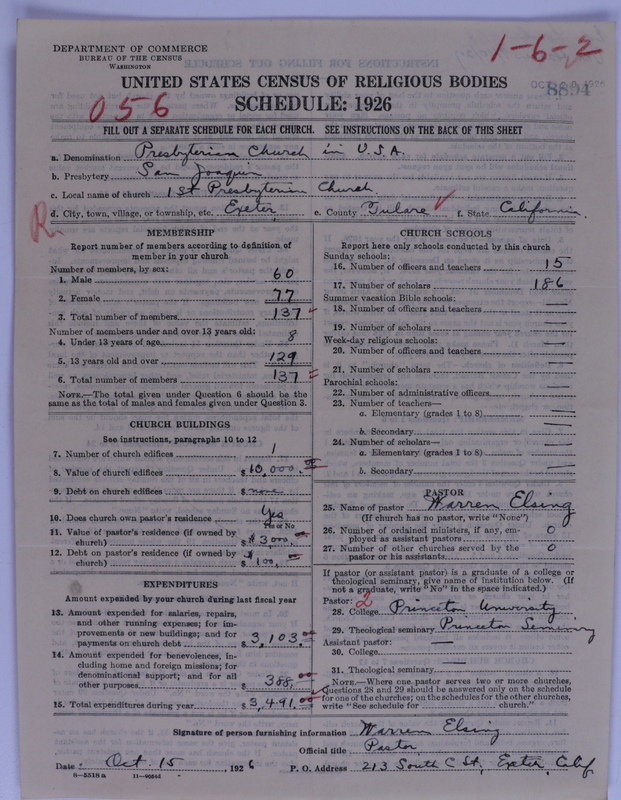 DEPARTMENT OF COMMERCE
BUREAU OF THE CENSUS
WASHINGTON
1-6-2
8894
UNITED STATES CENSUS OF RELIGIOUS BODIES
056
SCHEDULE: 1926
FILL OUT A SEPARATE SCHEDULE FOR EACH CHURCH. SEE INSTRUCTIONS ON THE BACK OF THIS SHEET
a. Denomination Presbyterian Church in U.S.A.
b. Presbytery San Joaquin
c. Local name of church 1st Presbyterian Church
d. City, town, village, or township, etc. Exeter e. County Tulare f. State California
R.
MEMBERSHIP
Report number of members according to definition of
member in your church
Number of members, by sex:
1. Male 60
2. Female 77
3. Total number of members 137
Number of members under and over 13 years old:
4. Under 13 years of age 8
5. 13 years old and over 129
6. Total number of members 137
NOTE.—The total given under Question 6 should be
same as the total of males and females given under Question 3.
CHURCH BUILDINGS
See instructions, paragraphs 10 to 12
7. Number of church edifices 1
8. Value of church edifices $10,000.00
9. Debt on church edifices $ none
10. Does church own pastor's residence Yes
Yes or No
11. Value of pastor's residence (if owned by
church) $ $3000
12. Debt on pastor's residence (if owned by
church) $ 100
EXPENDITURES
Amount expended by your church during last fiscal year
13. Amount expended for salaries, repairs,
and other running expenses; for im-
provements or new buildings; and for
payments on church debt $ 3,103.00
14. Amount expended for benevolences, in-
cluding home and foreign missions; for
denominational support; and for all
other purposes $ 388.00
15. Total expenditures during year $ 3,491.00
CHURCH SCHOOLS
Report here only schools conducted by this church
Sunday schools:
16. Number of officers and teachers 15
17. Number of scholars 186
Summer vacation Bible schools:
18. Number of officers and teachers —
19. Number of scholars —
Week-day religious schools:
20. Number of officers and teachers —
21. Number of scholars —
Parochial schools:
22. Number of administrative officers —
23. Number of teachers—
a. Elementary (grades 1 to 8) —
b. Secondary —
24. Number of scholars—
a. Elementary (grades 1 to 8) —
b. Secondary —
PASTOR
25. Name of pastor Warren Elsing
(If church has no pastor, write "None")
26. Number of ordained ministers, if any, em-
ployed as assistant pastors 0
27. Number of other churches served by the
pastor or his assistants 0
If pastor (or assistant pastor) is a graduate of a college or
theological seminary, give name of institution below. (If
not a graduate, write "No" in the space indicated.)
Pastor: 2
28. College Princeton University
29. Theological seminary Princeton Seminary
Assistant pastor:
30. College —
31. Theological seminary —
NOTE.—Where one pastor serves two or more churches,
Questions 28 and 29 should be answered only on the schedule
for one of the churches; on the schedules for the other churches,
write "See schedule for church."
Signature of person furnishing information Warren Elsing
Official title Pastor
Date Oct. 15, 1926 P. O. Address 213 South C St, Exeter, Calif
8—5518a 11—9056d